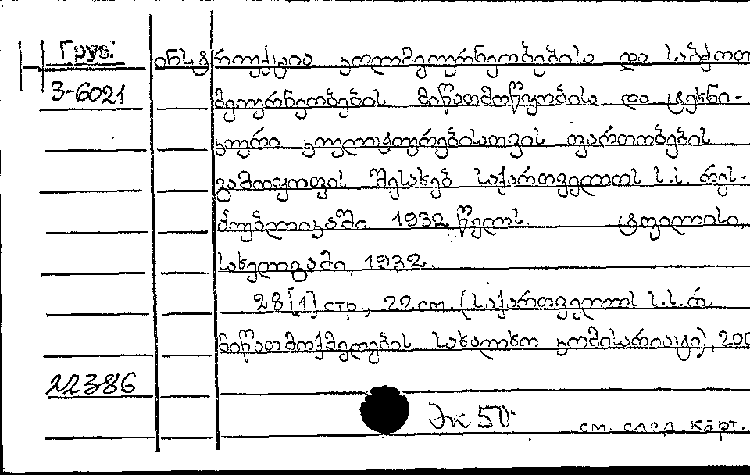 Груз. ინსტრუქცია კოლმეურნეობებისა და საბჭოთ
3-6021 მეურნეობების მიწათმოწყობისა და ტექნი-
კური კულტურებისათვის ფართობების
გამოყოფის შესახებ საქართველოს ს.ს. რეს-
პუბლიკაში 1932 წელს. ტფილისი,
სახელგამი, 1932.
28 [1] стр., 22 см. (საქართველოს ს.ს.რ.
მიწათმოქმედების სახალხო კომისარიატი), 200
22386
Эк 50 см. след. карт.